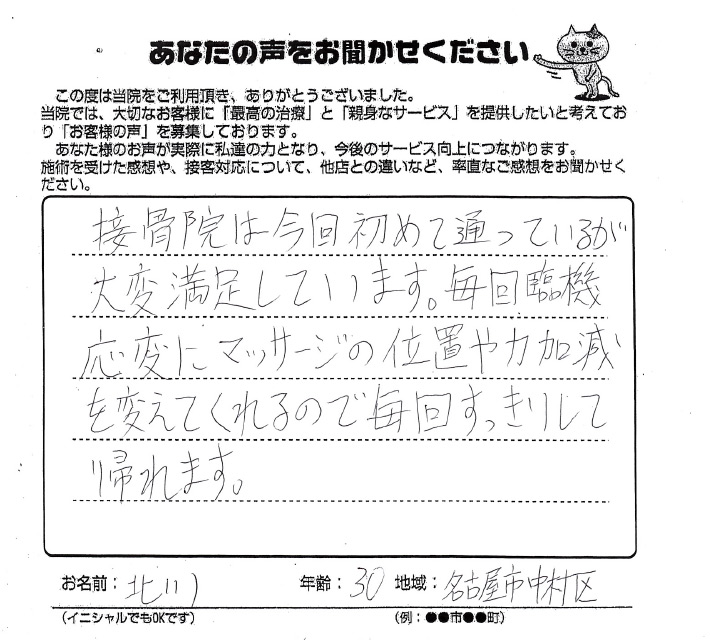 あなたの声をお聞かせください
この度は当院をご利用頂き、ありがとうございました。
当院では、大切なお客様に「最高の治療」と「親身なサービス」を提供したいと考えてお
り「お客様の声」を募集しております。
あなた様のお声が実際に私達の力となり、今後のサービス向上につながります。
施術を受けた感想や、接客対応について、他店との違いなど、率直なご感想をお聞かせく
ださい。
接骨院は今回初めて通っているが
大変満足しています。毎回臨機
応変にマッサージの位置や力加減
を変えてくれるので毎回すっきりして
帰れます。
お名前：北川 年齢：30 地域：名古屋市中村区
（イニシャルでもOKです） （例：●●市●●町）